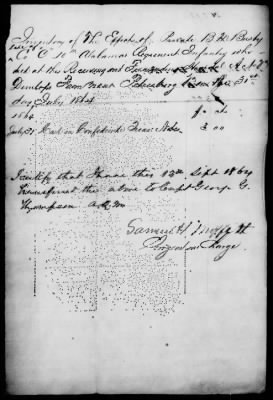 Inventory of The Effects of Private B. H. Busby
late of Co "C" 10th Alabama Regiment Infantry who
died at the Receiving and Hospital A. N. V.
Dunlops Farm near Petersburg Va on the 31st
day July 1864
1864
July 31 Cash in Confederate Treas Notes 3 00
I certify that I have this 13th Sept 1864
transferred the above to Capt George G.
Thompson A.Q.M
Samuel H.
Surgeon in Charge